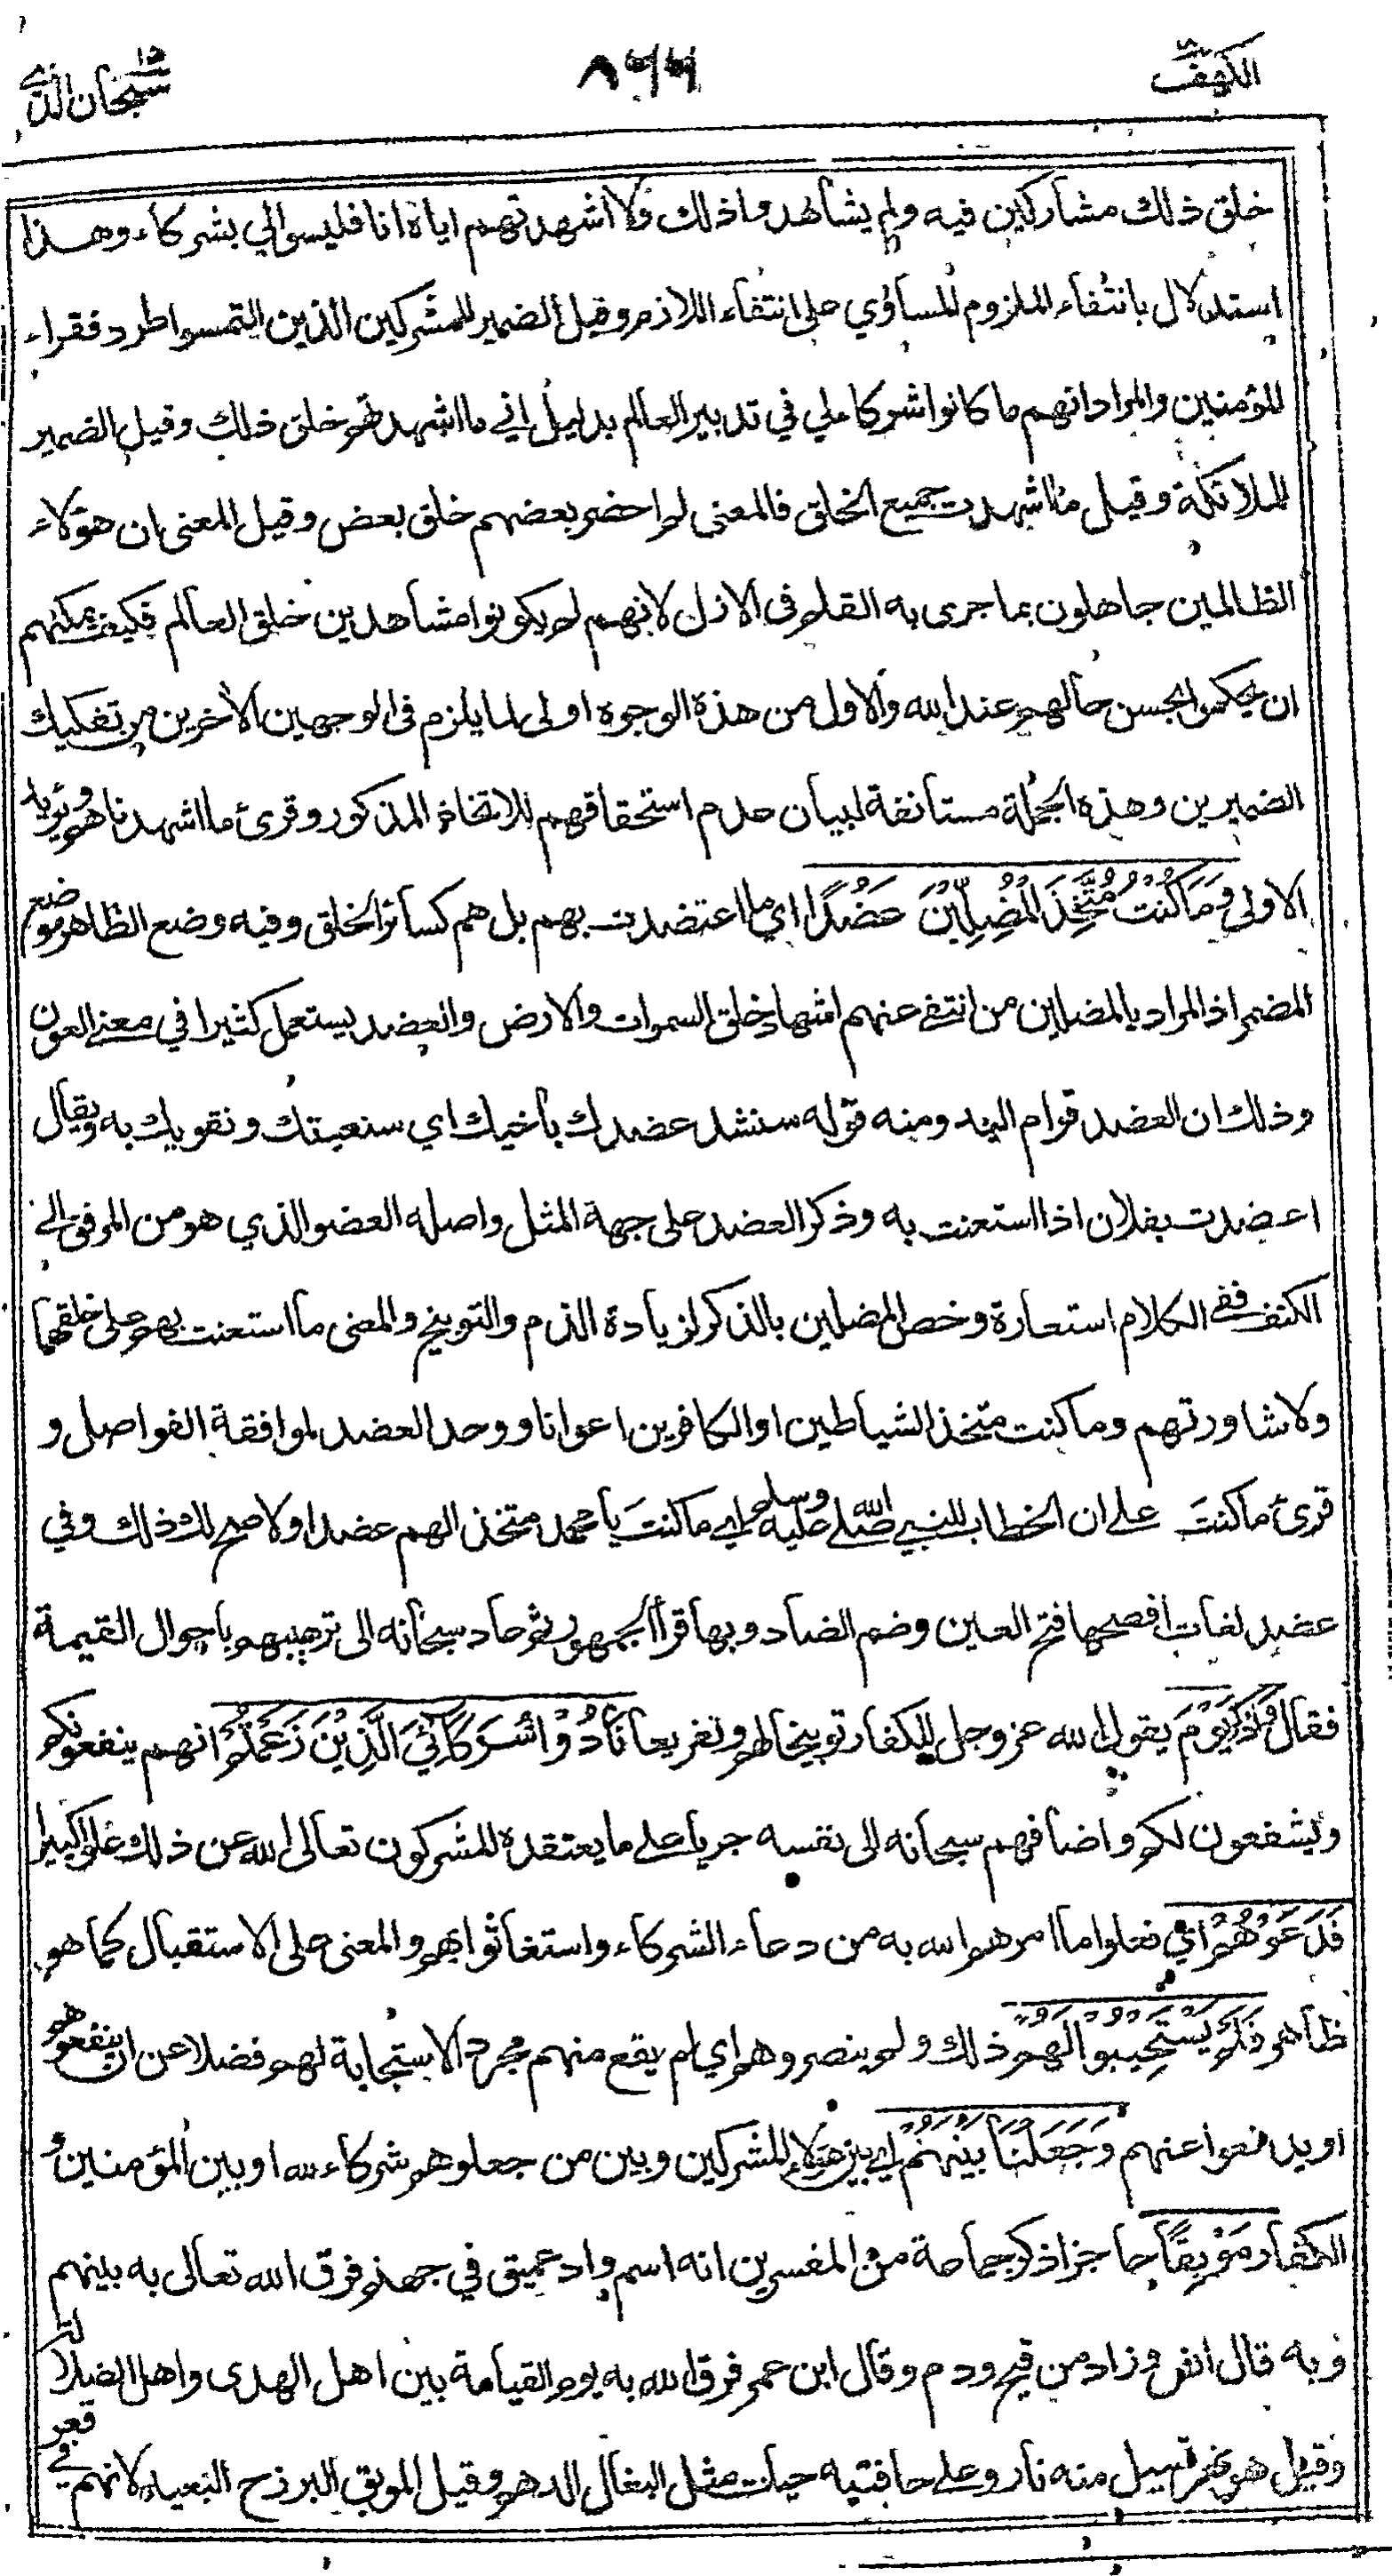 الكهف ٨٦٦ سبحان الذي ١٥
خلق ذلك مشاركين فيه ولم يشاهدوا ذلك ولا اشهدتهم اياه انا فليسوا لي بشركاء وهذا
استدلال بانتفاء الملزوم المساوي على انتفاء اللازم وقيل الضمير للمشركين الذين التمسوا طرد فقراء
المؤمنين والمراد انهم ما كانوا شركاء لي في تدبير العالم بدليل اني ما اشهدتهم خلق ذلك وقيل الضمير
للملائكة وقيل ما اشهدت جميع الخلق فالمعنى لم احضر بعضهم خلق بعض وقيل المعنى ان هؤلاء
الظالمين جاهلون بما جرى به القلم في الازل لانهم لم يكونوا مشاهدين خلق العالم فكيف يمكنهم
ان يحكموا بحسن حالهم عند الله والاول من هذه الوجوه اولى لما يلزم في الوجهين الأخرين من تفكيك
الضميرين وهذه الجملة مستأنفة لبيان عدم استحقاقهم للاتخاذ المذكور وقرئ ما اشهدناهم ويؤيد
الاولى وَمَا كُنْتُ مُتَّخِذَ الْمُضِلِّيْنَ عَضُدًا اي ما اعتضدت بهم بل هم كسائر الخلق وفيه وضع الظاهر موضع
المضمر اذ المراد بالمضلين من انتفى عنهم اشهاد خلق السموات والارض والعضد يستعمل كثيرا في معنى العون
وذلك ان العضد قوام اليد ومنه قوله سنشد عضدك بأخيك اي سنعينك ونقويك به ويقال
اعضدت بفلان اذا استعنت به وذكر العضد على جهة المثل واصله العضو الذي هو من المرفق الى
الكتف ففي الكلام استعارة وخص المضلين بالذكر لزيادة الذم والتوبيخ والمعنى ما استعنت بهم على خلقهما
ولا شاورتهم وما كنت متخذ الشياطين او الكافرين اعوانا ووحد العضد لموافقة الفواصل و
قرئ ما كنتَ على ان الخطاب للنبي صلى الله عليه وسلم اي ما كنتَ يا محمد متخذا لهم عضدا ولا صح لك ذلك وفي
عضد لغات افصحها فتح العين وضم الضاد وبها قرأ الجمهور ثم عاد سبحانه الى ترهيبهم باحوال القيمة
فقال وَ اذكر يَوْمَ يقول الله عز وجل للكفار توبيخا لهم وتقريعا نَادُوْا شُرَكَآئِيَ الَّذِيْنَ زَعَمْتُمْ انهم ينفعونكم
ويشفعون لكم واضافهم سبحانه الى نفسه جريا على ما يعتقده المشركون تعالى الله عن ذلك علوا كبيرا
فَدَعَوْهُمْ اي فعلوا ما امرهم الله به من دعاء الشركاء واستغاثوا بهم والمعنى على الاستقبال كما هو
ظاهر فَلَمْ يَسْتَجِيْبُوْا لَهُمْ ذلك ولم ينصروهم اي لم يقع منهم مجرد الاستجابة لهم فضلا عن ان ينفعوهم
او يدفعوا عنهم وَجَعَلْنَا بَيْنَهُمْ اي بين هؤلاء المشركين وبين من جعلوهم شركاء لله او بين المؤمنين و
الكفار مَوْبِقًا حاجزا ذكر جماعة من المفسرين انه اسم واد عميق في جهنم فرق الله تعالى به بينهم
وبه قال انس وزاد من قيح ودم وقال ابن عمر فرق الله به يوم القيامة بين اهل الهدى واهل الضلالة
وقيل هو نهر تسيل منه نار وعلى حافتيه حيات مثل البغال الدهم وقيل الموبق البرزخ البعيد لانهم في قعر